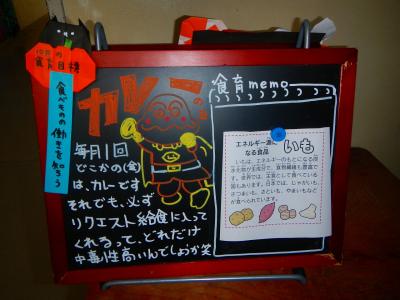 10月の
食育目標
食べものの働きを知ろう
カレーの
毎月1回
どこかの(金)
は、カレーです
それでも、必ず
リクエスト給食に入って
くれるって、どれだけ
中毒性高いんでしょうか笑
食育memo
エネルギー源に
なる食品
いも
いもは、エネルギーのもとになる炭
水化物が主成分で、食物繊維も豊富で
す。世界では、主食として食べている
国もあります。日本では、じゃがいも、
さつまいも、さといも、やまいもなど
が食べられています。